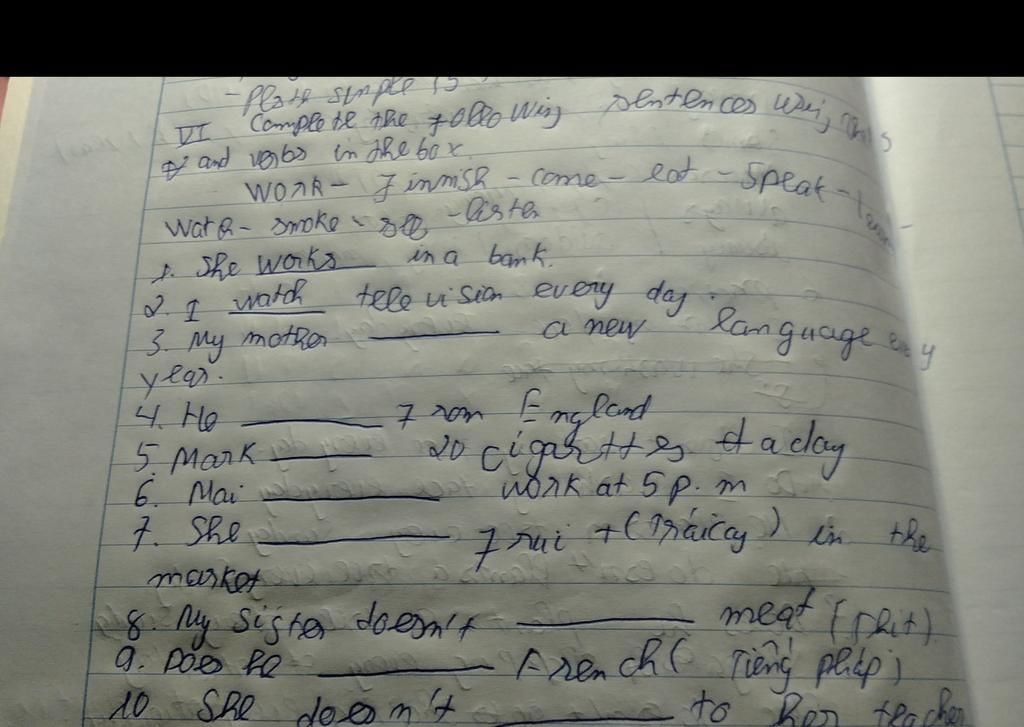 simple
VI Complete the following sentences
and verbs in the box
work - finmish - come - eat - Speak -
- smoke - sell - listen
1. She works in a bank.
2. I watch television every day.
3. My mother ________ a new language every
year.
4. He ________ from England
5. Mark ________ 20 cigarttes a day
6. Mai ________ work at 5 p.m
7. She ________ frui t (Trái cây) in the
market
8. My sister doesn't ________ meat (Thịt)
9. Does he ________ French (Tiếng pháp)
10 She doesn't ________ to her teacher